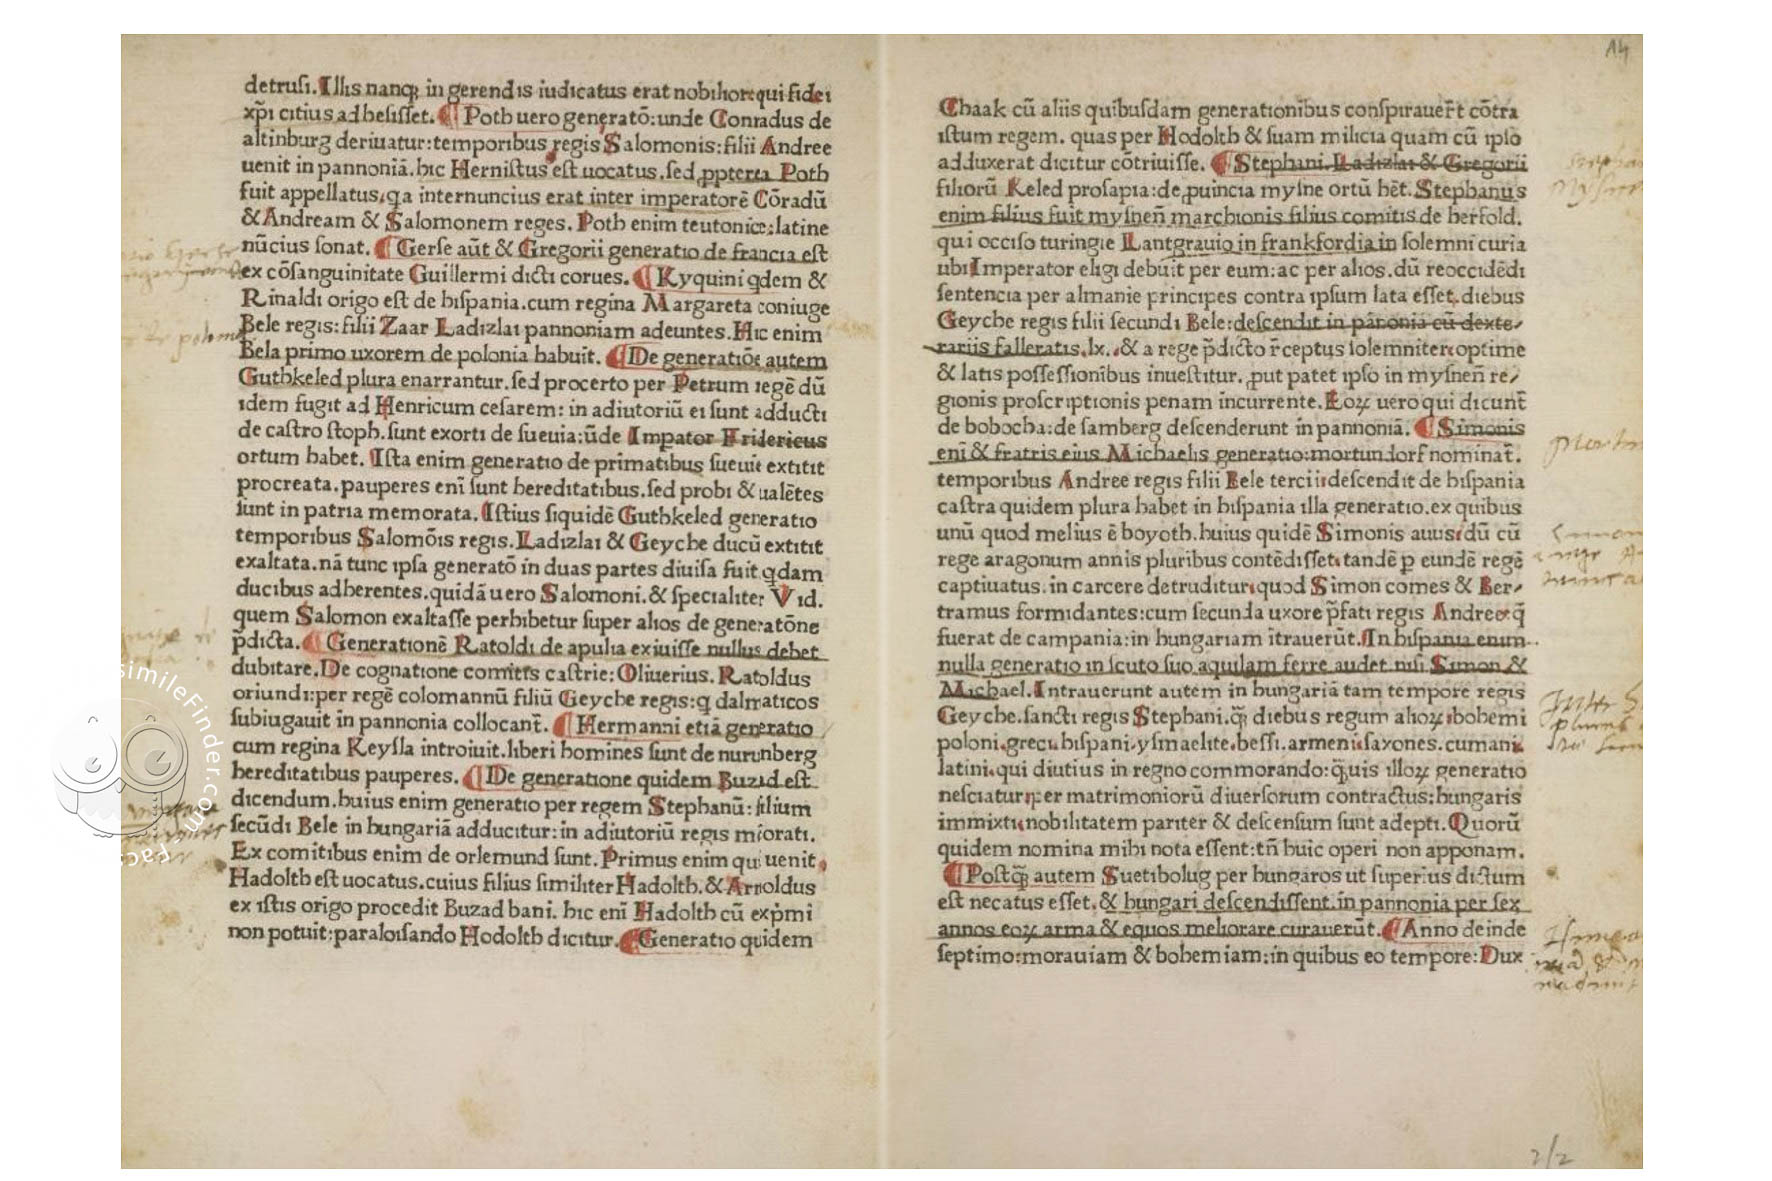 detrusi. Illis nanq; in gerendis iudicatus erat nobilior: qui fidei
xp̄i citius adhesisset. ¶ Poth uero generatō: unde Conradus de
altinburg deriuatur: temporibus regis Salomonis: filii Andree
uenit in pannoniā. hic Hernistus est uocatus. sed ꝓpterea Poth
fuit appellatus. qa internuncius erat inter imperatorē Cōradū
& Andream & Salomonem reges. Poth enim teutonice: latine
nūcius sonat. ¶ Gerse aūt & Gregorii generatio de francia est
ex cōsanguinitate Guillermi dicti corues. ¶ Kyquini qdem &
Rinaldi origo est de hispania. cum regina Margareta coniuge
Bele regis: filii Zaar Ladizlai pannoniam adeuntes. Hic enim
Bela primo uxorem de polonia habuit. ¶ De generatiōe autem
Guthkeled plura enarrantur. sed procerto per Petrum regē dū
idem fugit ad Henricum cesarem: in adiutoriū ei sunt adducti
de castro stoph. sunt exorti de sueuia: ūde Impator Fridericus
ortum habet. Ista enim generatio de primatibus sueuie extitit
procreata. pauperes enī sunt hereditatibus. sed probi & ualētes
sunt in patria memorata. Istius siquidē Guthkeled generatio
temporibus Salomōis regis. Ladizlai & Geyche ducū extitit
exaltata. nā tunc ipsa generatō in duas partes diuisa fuit. qdam
ducibus adherentes. quidā uero Salomoni. & specialiter Vid.
quem Salomon exaltasse perhibetur super alios de generatōne
p̄dicta. ¶ Generationē Ratoldi de apulia exiuisse nullus debet
dubitare. De cognatione comitis castrie: Oliuerius. Ratoldus
oriundi: per regē colomannū filiū Geyche regis: q dalmaticos
subiugauit in pannonia collocant̄. ¶ Hermanni etiā generatio
cum regina Keysla introiuit. liberi homines sunt de nurunberg
hereditatibus pauperes. ¶ De generatione quidem Buzad est
dicendum. huius enim generatio per regem Stephanū: filium
secūdi Bele in hungariā adducitur: in adiutoriū regis miorati.
Ex comitibus enim de orlemund sunt. Primus enim qui uenit.
Hadolth est uocatus. cuius filius similiter Hadolth. & Arnoldus
ex istis origo procedit Buzad bani. hic enī Hadolth cū exp̄mi
non potuit: paraloisando Hodolth dicitur. ¶ Generatio quidem
14
Chaak cū aliis quibusdam generationibus conspirauer̄t cōtra
istum regem. quas per Hodolth & suam milicia quam cū ipso
adduxerat dicitur cōtriuisse. ¶ Stephani. Ladizlai & Gregorii
filiorū Keled prosapia: de ꝓuincia mysne ortū hēt. Stephanus
enim filius fuit mysnen̄ marchionis filius comitis de herfold.
qui occiso turingie Lantgrauio in frankfordia in solemni curia
ubi Imperator eligi debuit per eum: ac per alios. dū reoccidēdi
sentencia per almanie principes contra ipsum lata esset. diebus
Geyche regis filii secundi Bele: descendit in pānonia cū dexte-
rariis falleratis. lx. & a rege p̄dicto r̄ceptus solemniter: optime
& latis possessionibus inuestitur. ꝓut patet ipso in mysnen̄ re-
gionis proscriptionis penam incurrente. Eoꝝ uero qui dicunt̄
de bobocha: de samberg descenderunt in pannoniā. ¶ Simonis
enī & fratris eius Michaelis generatio: mortundorf nominat̄.
temporibus Andree regis filii Bele tercii: descendit de hispania
castra quidem plura habet in hispania illa generatio. ex quibus
unū quod melius ē boyoth. huius quidē Simonis auus: dū cū
rege aragonum annis pluribus contēdisset: tandē p eundē regē
captiuatus. in carcere detruditur: quod Simon comes & Ber-
tramus formidantes: cum secunda uxore p̄fati regis Andree: q̄
fuerat de campania: in hungariam ītrauerūt. In hispania enim
nulla generatio in scuto suo aquilam ferre audet. nisi Simon &
Michael. Intrauerunt autem in hungariā tam tempore regis
Geyche. sancti regis Stephani. q̄ȝ diebus regum alioꝝ: bohemi
poloni. greci. hispani. ysmaelite. bessi. armeni. saxones. cumani.
latini. qui diutius in regno commorando: q̄uis illoꝝ generatio
nesciatur: per matrimoniorū diuersorum contractus: hungaris
immixti. nobilitatem pariter & descensum sunt adepti. Quorū
quidem nomina mihi nota essent: tn̄ huic operi non apponam.
¶ Postq̄ȝ autem Suetibolug per hungaros ut superius dictum
est necatus esset. & hungari descendissent. in pannonia per sex
annos eoꝝ arma & equos meliorare curauerūt. ¶ Anno deinde
septimo: morauiam & bohemiam: in quibus eo tempore: Dux
2/2